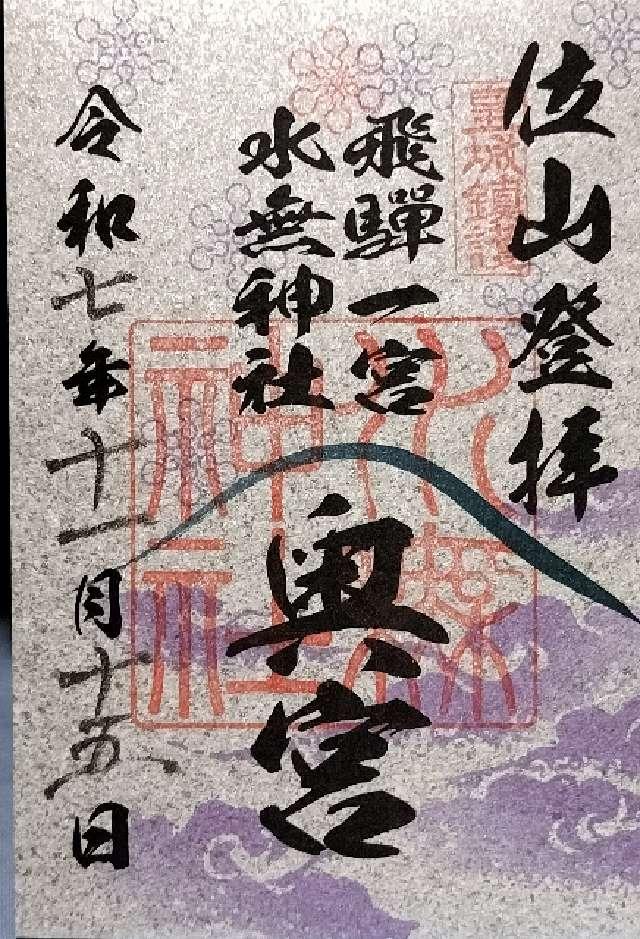 位山登拝
皇城鎮護
飛騨一宮
水無神社
奥宮
水無
神社
令和七年十一月十五日